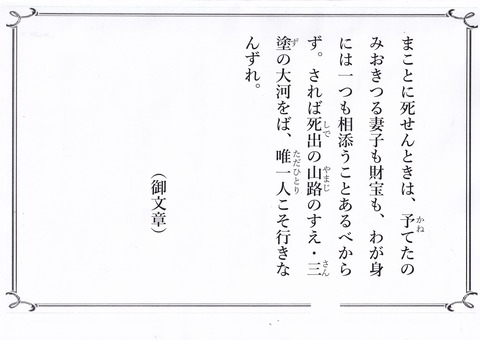 まことに死せんときは、予てたの
みおきつる妻子も財宝も、わが身
には一つも相添うことあるべから
ず。されば死出の山路のすえ・三
塗の大河をば、唯一人こそ行きな
んずれ。
（御文章）
かね
しで
やまじ
さん
ず
ただひとり